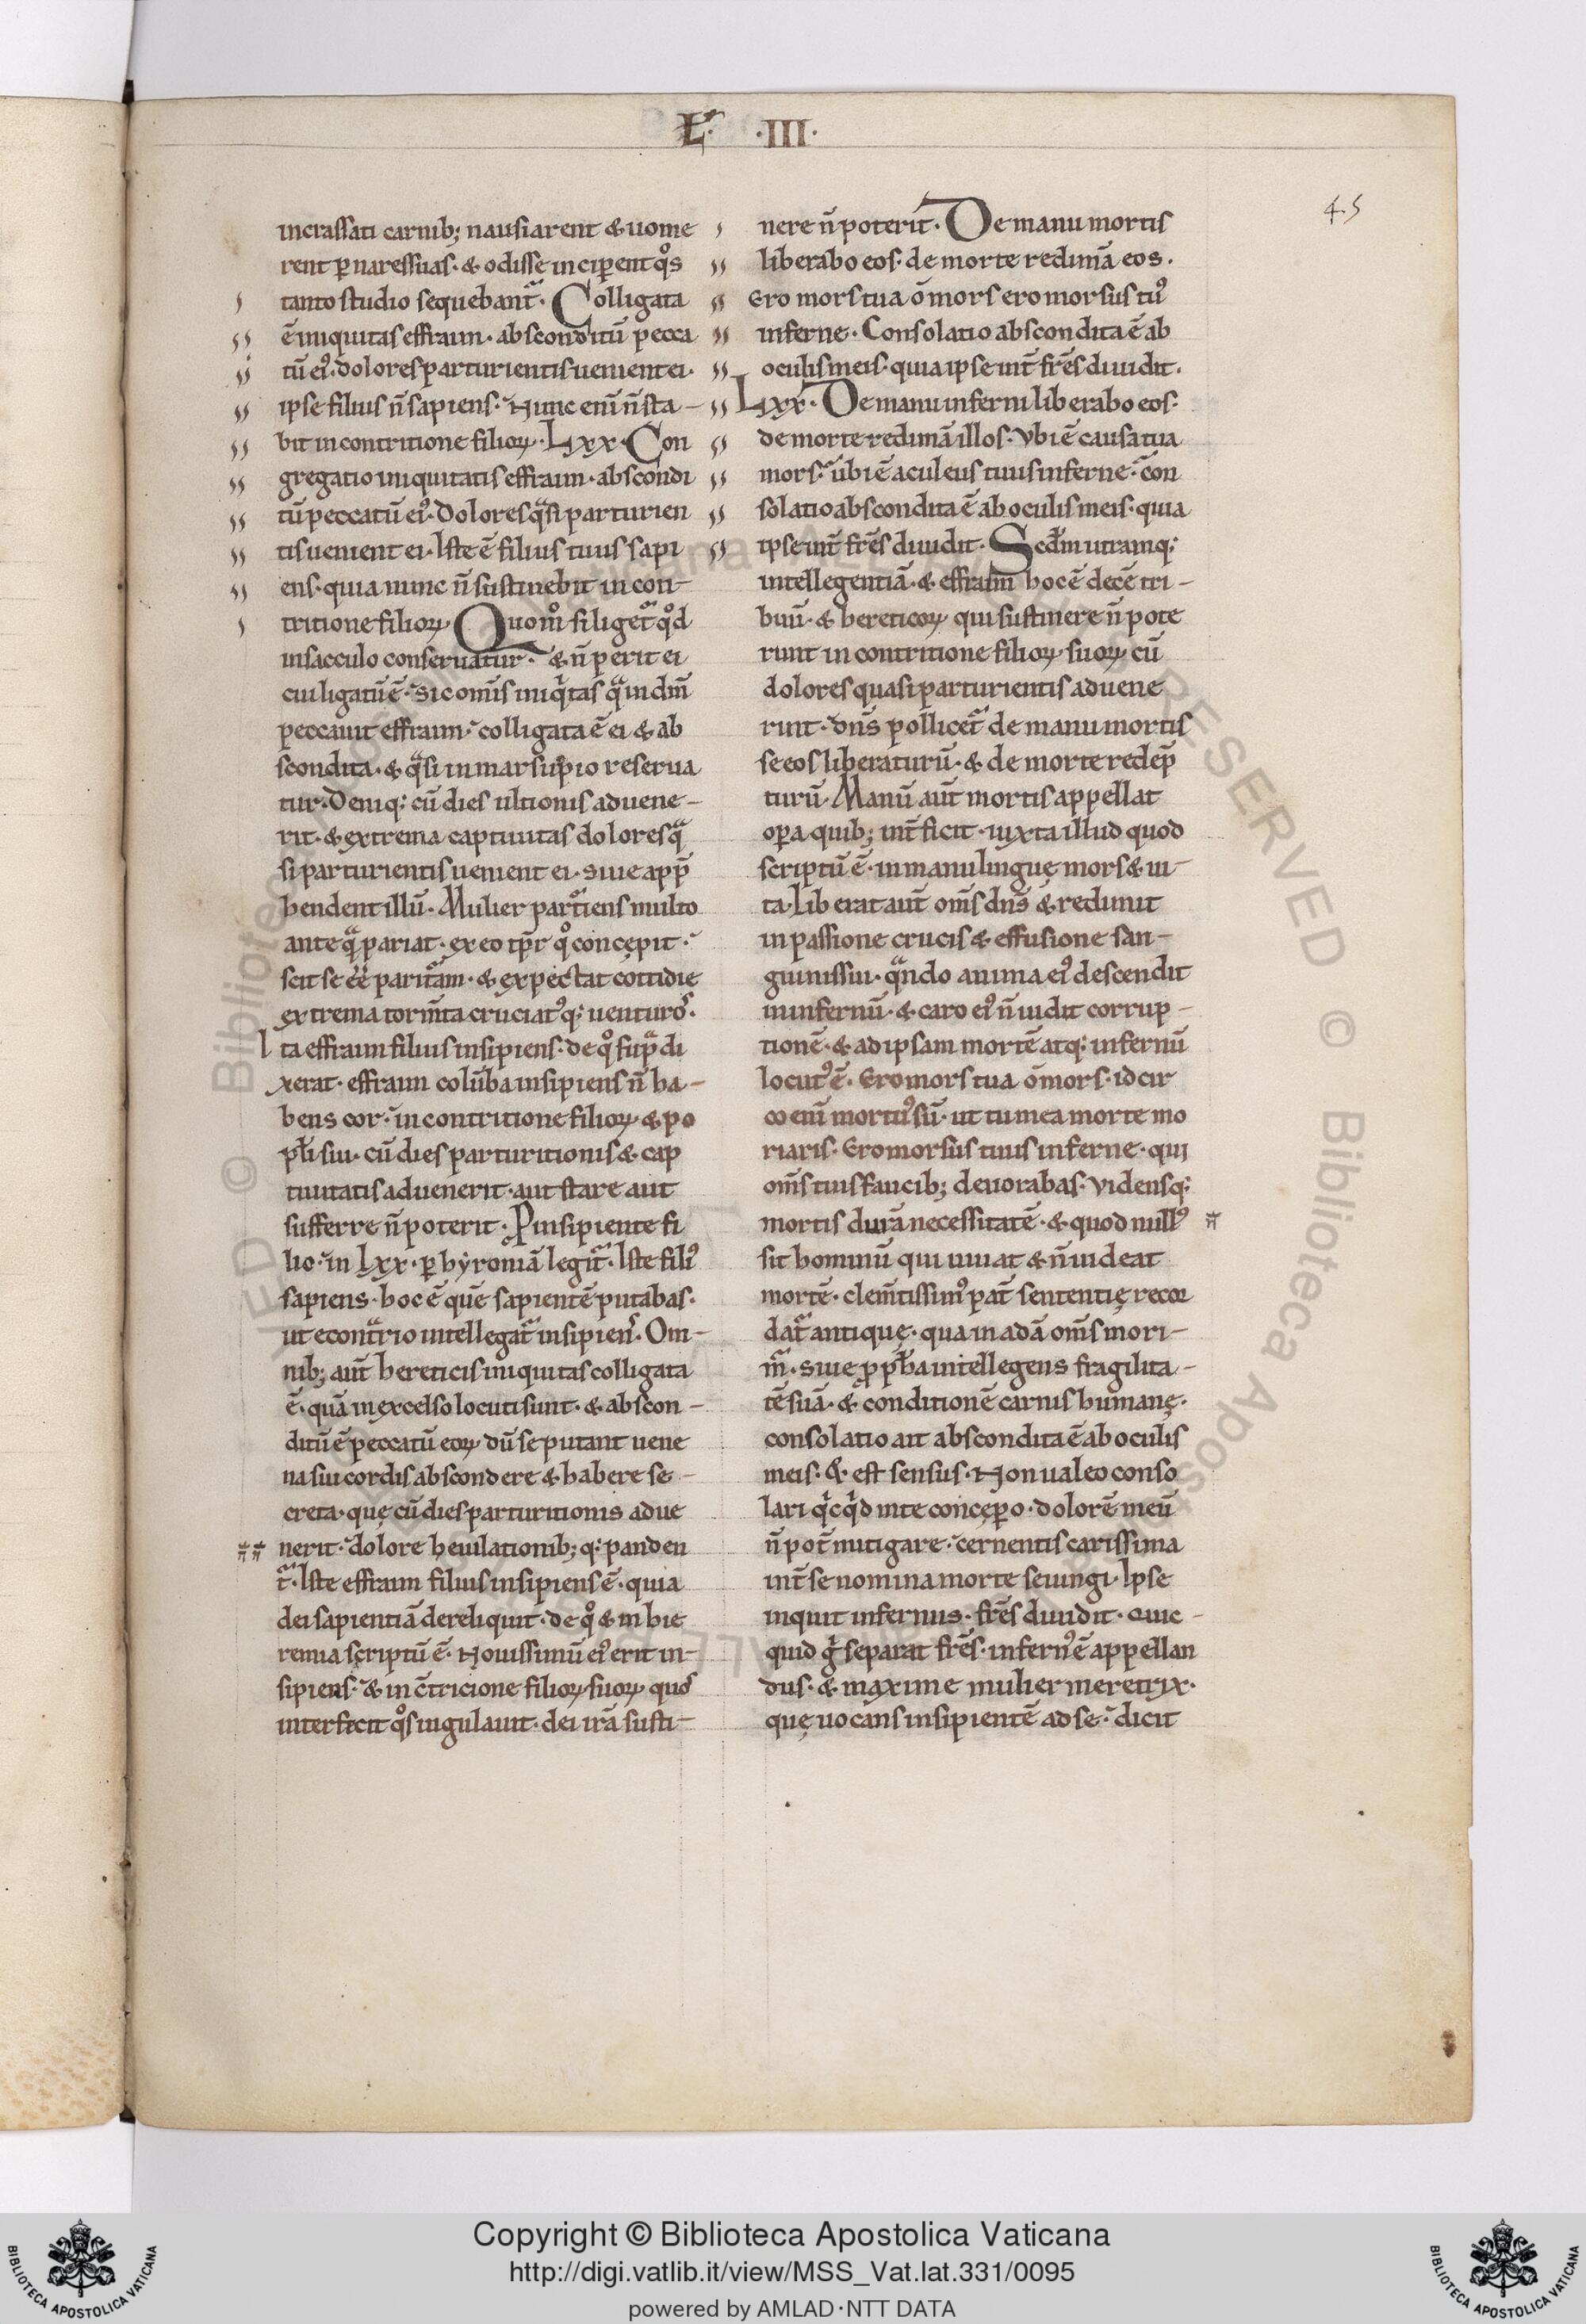 L · III ·
45
incrassati carnib; nausiarent & uome
rent ꝑ naressuas · & odisse inciperent qͦs
tanto studio sequebantᷓ · Colligata
ē iniquitas effraim · absconditū pecca
tū eiꝰ · dolores parturientis uenient ei ·
ipse filius n̄ sapiens · Nunc eni n̄ sta-
bit in contritione filioꝝ · Lxx · Con
gregatio iniquitatis effraim · abscondi
tū peccatū eiꝰ · Dolores qᷓsi parturien
tis uenient ei · Iste ē filius tuus sapi
ens · quia nunc n̄ sustinebit in con-
tritione filioꝝ · Quom̊ si ligetᷓ qͦd
insacculo conseruatur · & n̄ perit ei
cui ligatū ē · sic om̄s iniqͥtas qᷓ in dm̄
peccauit effraim · colligata ē ei & ab
scondita · & qᷓsi in marsupio reserua
tur · Deniq; cū dies ultionis aduene-
rit · & extrema captiuitas dolores qᷓ
si parturientis uenient ei · siue app̄
hendent illū · Mulier parturiens multo
ante qᷓ pariat · ex eo tp̄r qͦ concępit ·
scit se ēē paritᷓam · & expectat cottidie
extrema torm̄ta cruciatꝰq; uenturos ·
Ita effraim filius insipiens · de qͦ supᷓ di
xerat · effraim colūba insipiens n̄ ha-
bens cor · in contritione filioꝝ · & po
pl̄i sui · cū dies parturitionis & cap
tiuitatis aduenerit · aut stare aut
sufferre n̄ poterit · P insipiente fi
lio · in Lxx · ꝑ hyroniā legitᷓ · Iste filiꝰ
sapiens · hoc ē quē sapientē putabas ·
ut econtᷓrio intellegatᷓ insipiens · Om-
nib; aut̄ hereticis iniquitas colligata
ē · quā in excelso locuti sunt · & abscon-
ditū ē peccatū eoꝝ dū se putant uene
na sui cordis abscondere & habere se-
creta · quę cū dies parturitionis adue
nerit · dolore heiulationib; q; panden
t̄ᷓ · Iste effraim filius insipiens ē · quia
dei sapientiā dereliquit · de qͦ & in hie
remia scriptū ē · Nouissimū eiꝰ erit in-
sipiens · & in c̄tricione filioꝝ suoꝝ quos
interfecit qͦs iugulauit · dei irā susti-
nere n̄ poterit · De manu mortis
liberabo eos · de morte redimā eos ·
Ero mors tua ō mors ero morsus tuꝰ
inferne · Consolatio abscondita ē ab
oculis meis · quia ipse int̄ fr̄es diuidit ·
Lxx · De manu inferni liberabo eos ·
de morte redimā illos · Vbi ē causa tua
mors · ubi ē aculeus tuus inferne · con
solatio abscondita ē ab oculis meis · quia
ipse int̄ fr̄es diuidit · Scd̄m utramq;
intellegentiā · & effraim hoc ē decē tri-
buū · & hereticoꝝ qui sustinere n̄ pote
runt in contritione filioꝝ suoꝝ cū
dolores quasi parturientis aduene
rint · dn̄s pollicetᷓ de manu mortis
se eos liberaturū · & de morte redēp
turū · Manū aut̄ mortis appellat
oꝑa quib; int̄ficit · iuxta illud quod
scriptū ē · in manu linguę mors & ui-
ta · Liberat aut̄ om̄s dn̄s & redimit
in passione crucis & effusione san-
guinis sui · qᷓndo anima eiꝰ descendit
in infernū · & caro eiꝰ n̄ uidit corrup-
tionē · & ad ipsam mortē atq; infernū
locutꝰ ē · Ero mors tua ō mors · idcir
co eni mortuꝰ sū · ut tu mea morte mo
riaris · Ero morsus tuus inferne · qui
om̄s tuis faucib; deuorabas · Vidensq;
mortis durā necessitatē · & quod nullꝰ
sit hominū qui uiuat & n̄ uideat
mortē · clem̄tissimꝰ pat̄ sententię recor
datᷓ antiquę · qua in adā om̄s mori-
mᷓ · siue ꝓph̄a intellegens fragilita-
tē suā · & conditionē carnis humanę ·
consolatio ait abscondita ē ab oculis
meis · & est sensus · Non ualeo conso
lari qͥcqͥd mente concępero · dolorē meū
n̄ pot̄ mitigare · cernentis carissima
int̄ se nomina morte seiungi · Ipse
inquit infernus · fr̄es diuidit · Quic-
quid gͥ separat fr̄es · infernꝰ ē appellan
dus · & maxime mulier meretrix ·
quę uocans insipientē ad se · dicit
Copyright © Biblioteca Apostolica Vaticana
http://digi.vatlib.it/view/MSS_Vat.lat.331/0095
powered by AMLAD·NTT DATA
BIBLIOTECA APOSTOLICA VATICANA
BIBLIOTECA APOSTOLICA VATICANA